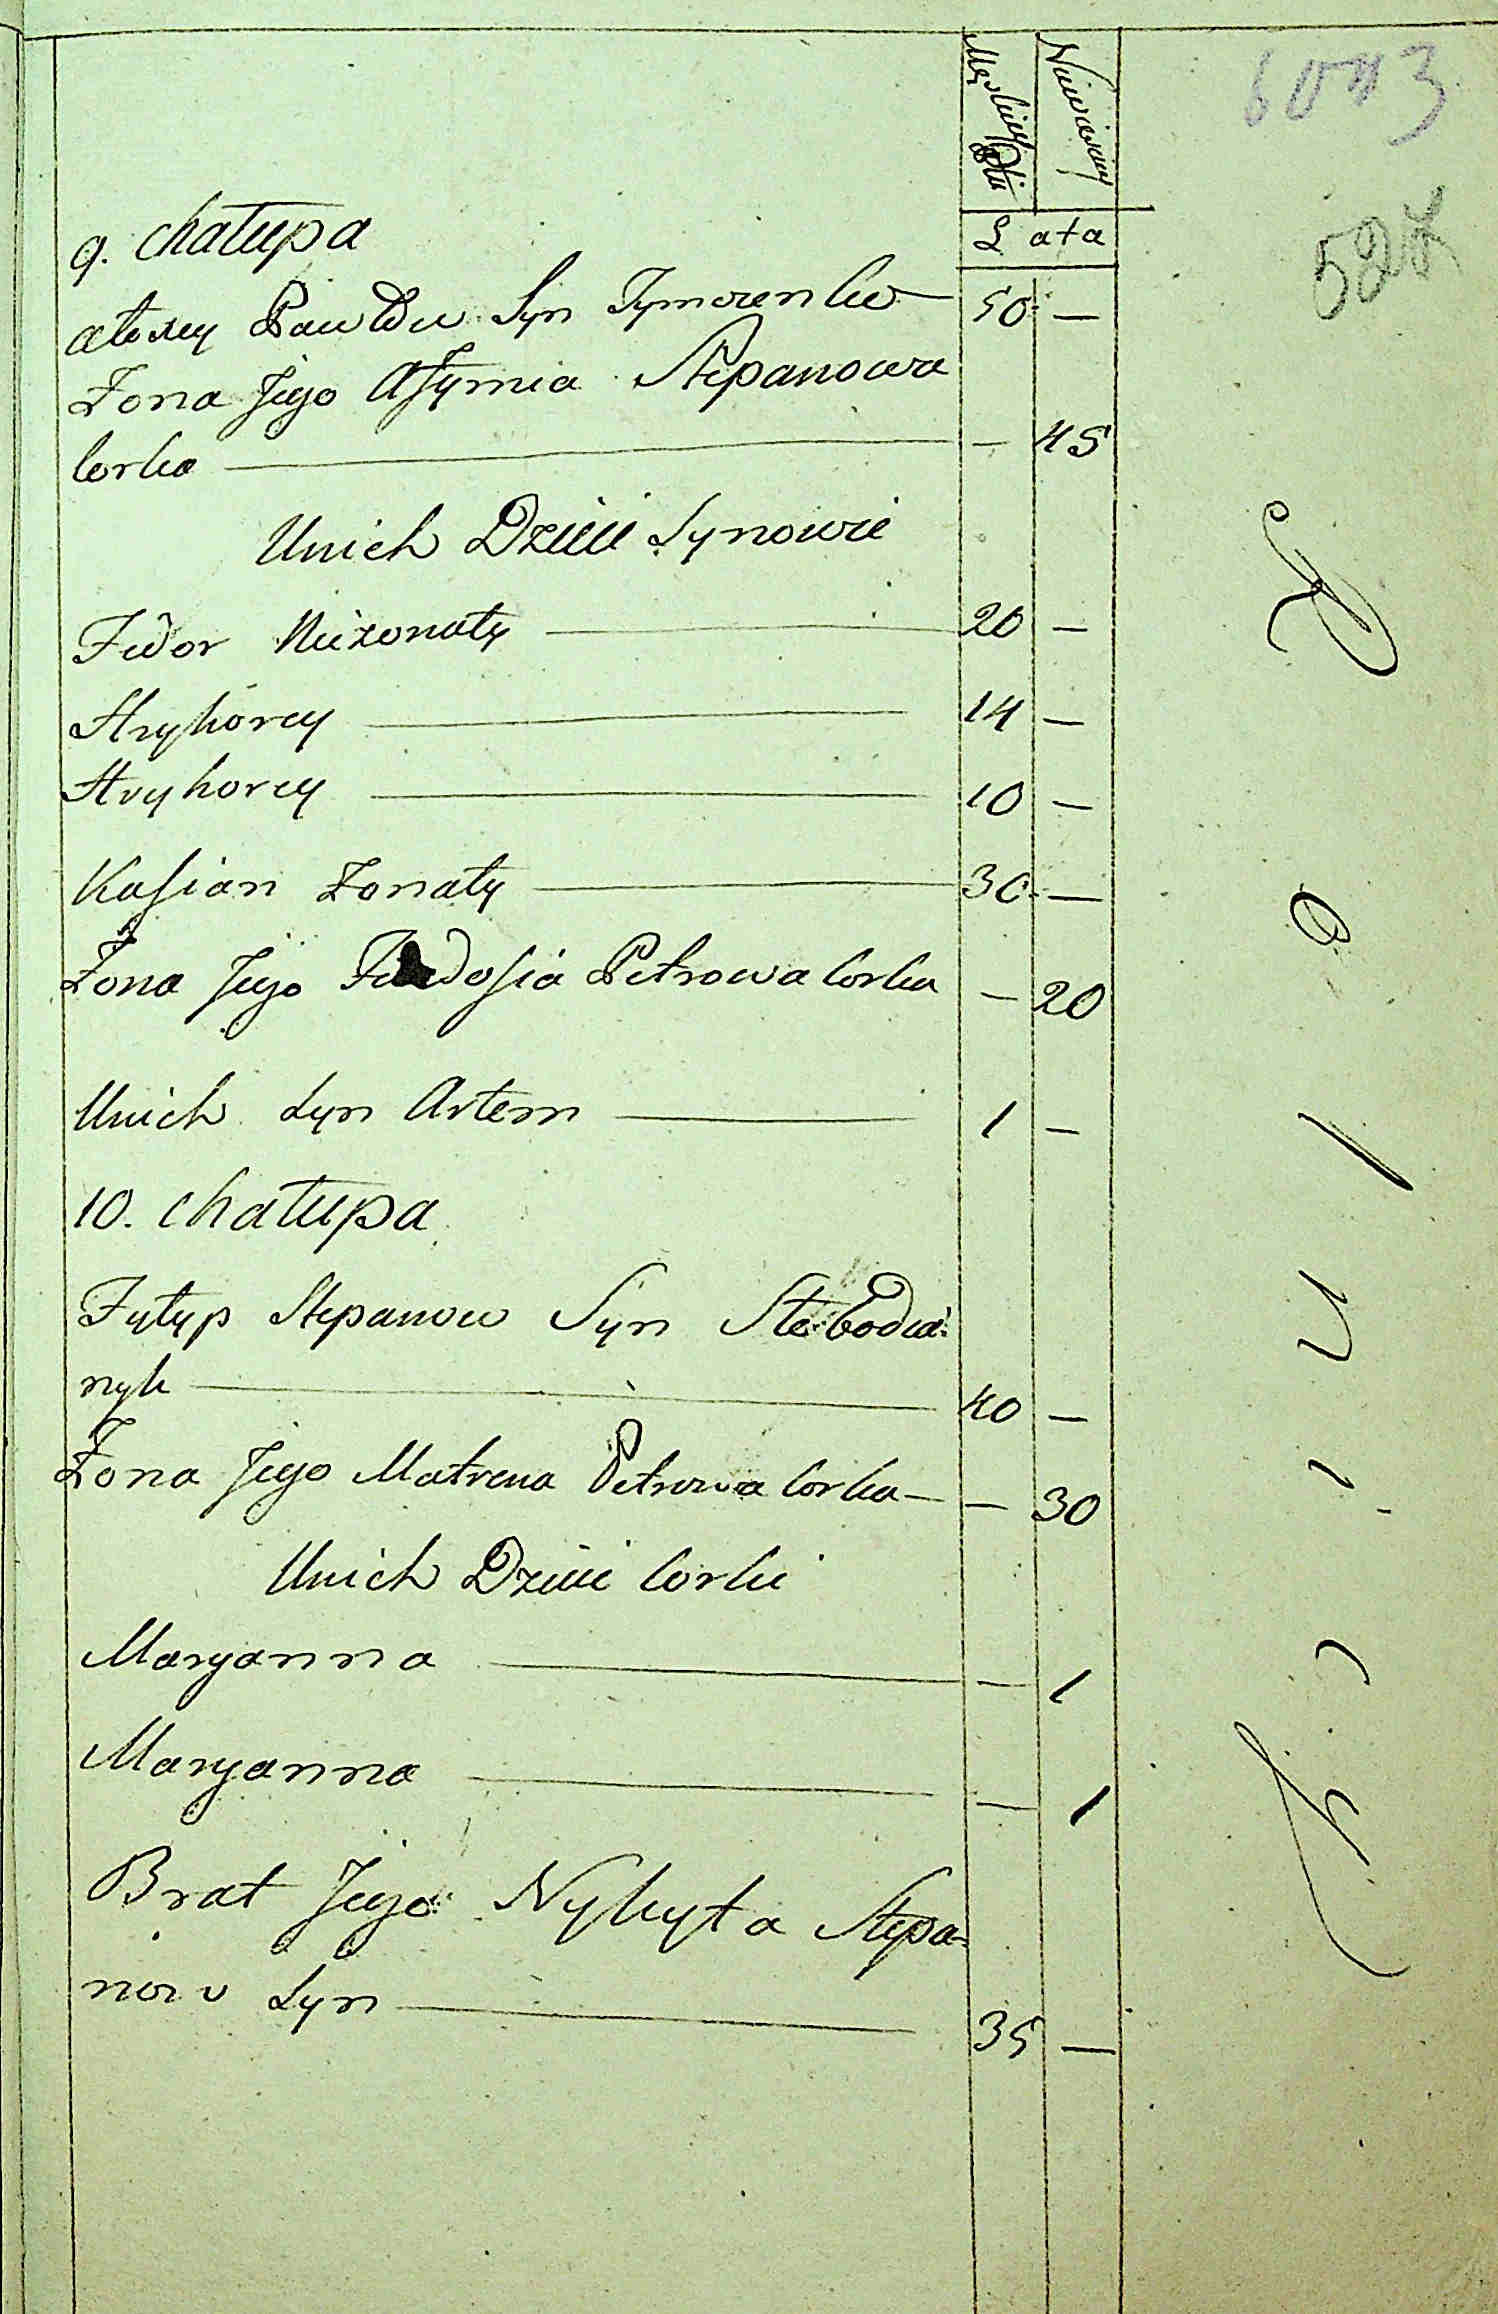 6043
527
Męskiey Płci
Niewiesciey
Lata
9. chałupa
Ałexey Pawłow Syn Tymczenko — 50 —
Żona Jego Afymia Stepanowa
Corka — — 45
Unich Dzieci Synowie
Fedor Nieżonaty — 20 —
Hryhorey — 14 —
Hryhorey — 10 —
Kasian Żonaty — 30 —
Żona Jego Fedosia Petrowa Corka — 20
Unich Syn Artem — 1 —
10. chałupa
Fyłyp Stepanow Syn Słobodia:
nyk — 40 —
Żona Jego Matrena Petrowa Corka — — 30
Unich Dzieci Corki
Maryanna — — 1
Maryanna — — 1
Brat Jego Nykyta Stepa=
now Syn — 35 —